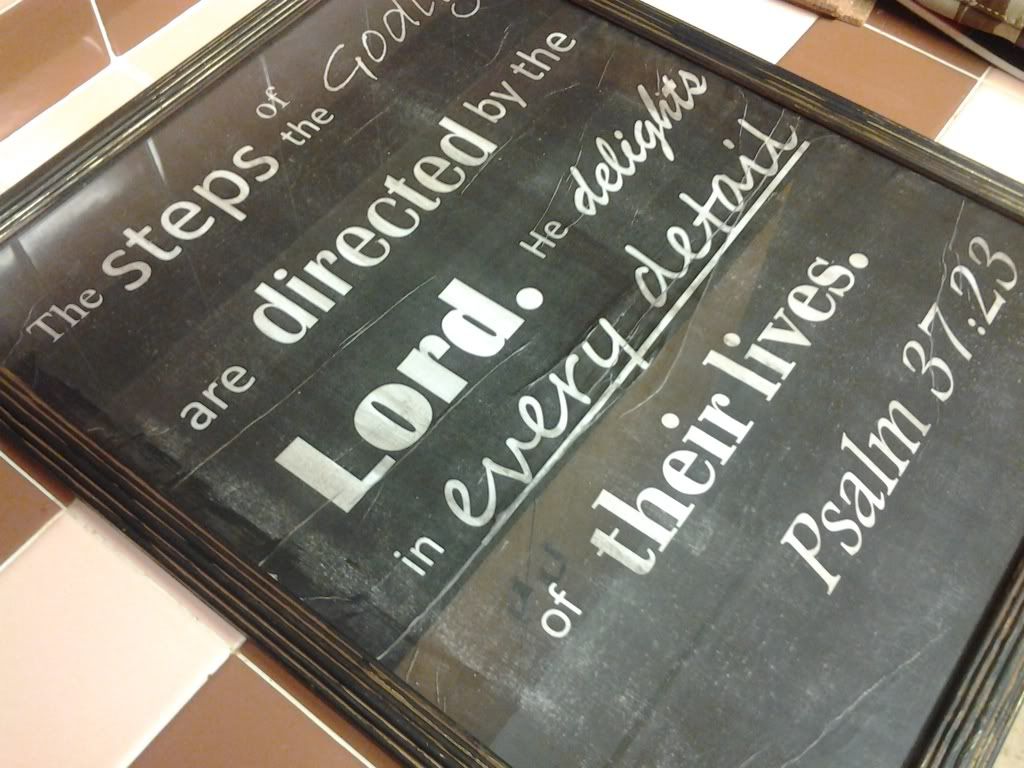 The steps of the Godly
are directed by the
Lord. He delights
in every detail
of their lives.
Psalm 37:23